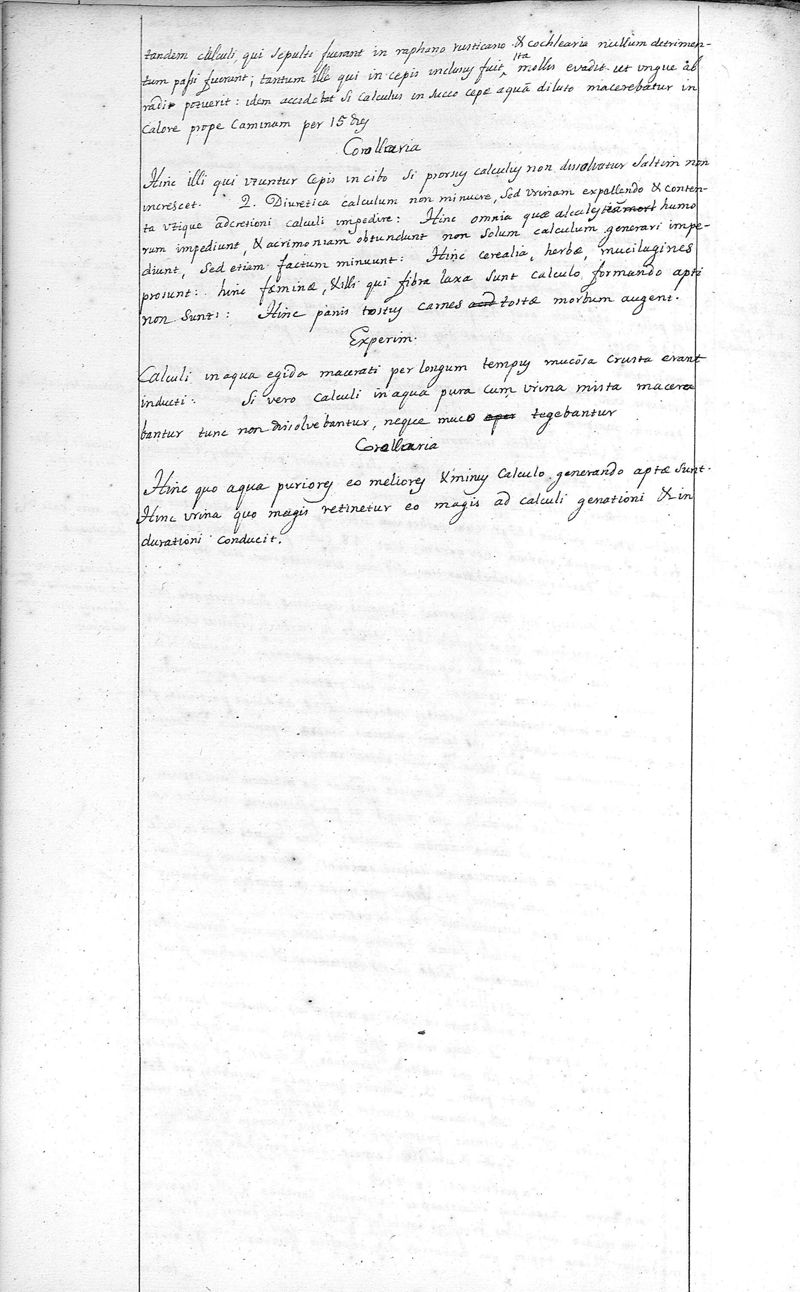 tandem calculi, qui sepulti fuerant in raphano rusticano & cochlearia nullum detrimen-
tum passi fuerant; tantum ille qui in cepis inclusus fuit, ita mollis evadit ut ungue ab
radi potuerit: idem accidebat si calculus in succo cepæ aquâ diluto macerebatur in
Calore prope Caminum per 15 dies
Corollaria
Hinc illi qui utuntur Cepis in cibo si prorsus calculus non dissolvatur saltim non
increscet. 2. Diuretica calculum non minuere, sed urinam expellendo & conten-
ta utique adcretioni calculi impedire: Hinc omnia quæ humo
rum impediunt, & acrimoniam obtundunt non solum calculum generari impe-
diunt, sed etiam factum minuunt: Hinc cerealia, herbæ, mucilagines
prosunt: hinc fæminæ, & illi qui fibra laxa sunt calculo formando apti
non sunt: Hinc panis tostus carnes tostæ morbum augent.
Experim.
Calculi in aqua egida macerati per longum tempus mucosa crusta erant
inducti: Si vero calculi in aqua pura cum urina mista macera
bantur tunc non dissolvebantur, neque muco tegebantur
Corollaria
Hinc quo aqua puriores eo meliores & minus Calculo generando aptæ sunt.
Hinc urina quo magis retinetur eo magis ad calculi genationi & in
durationi conducit.